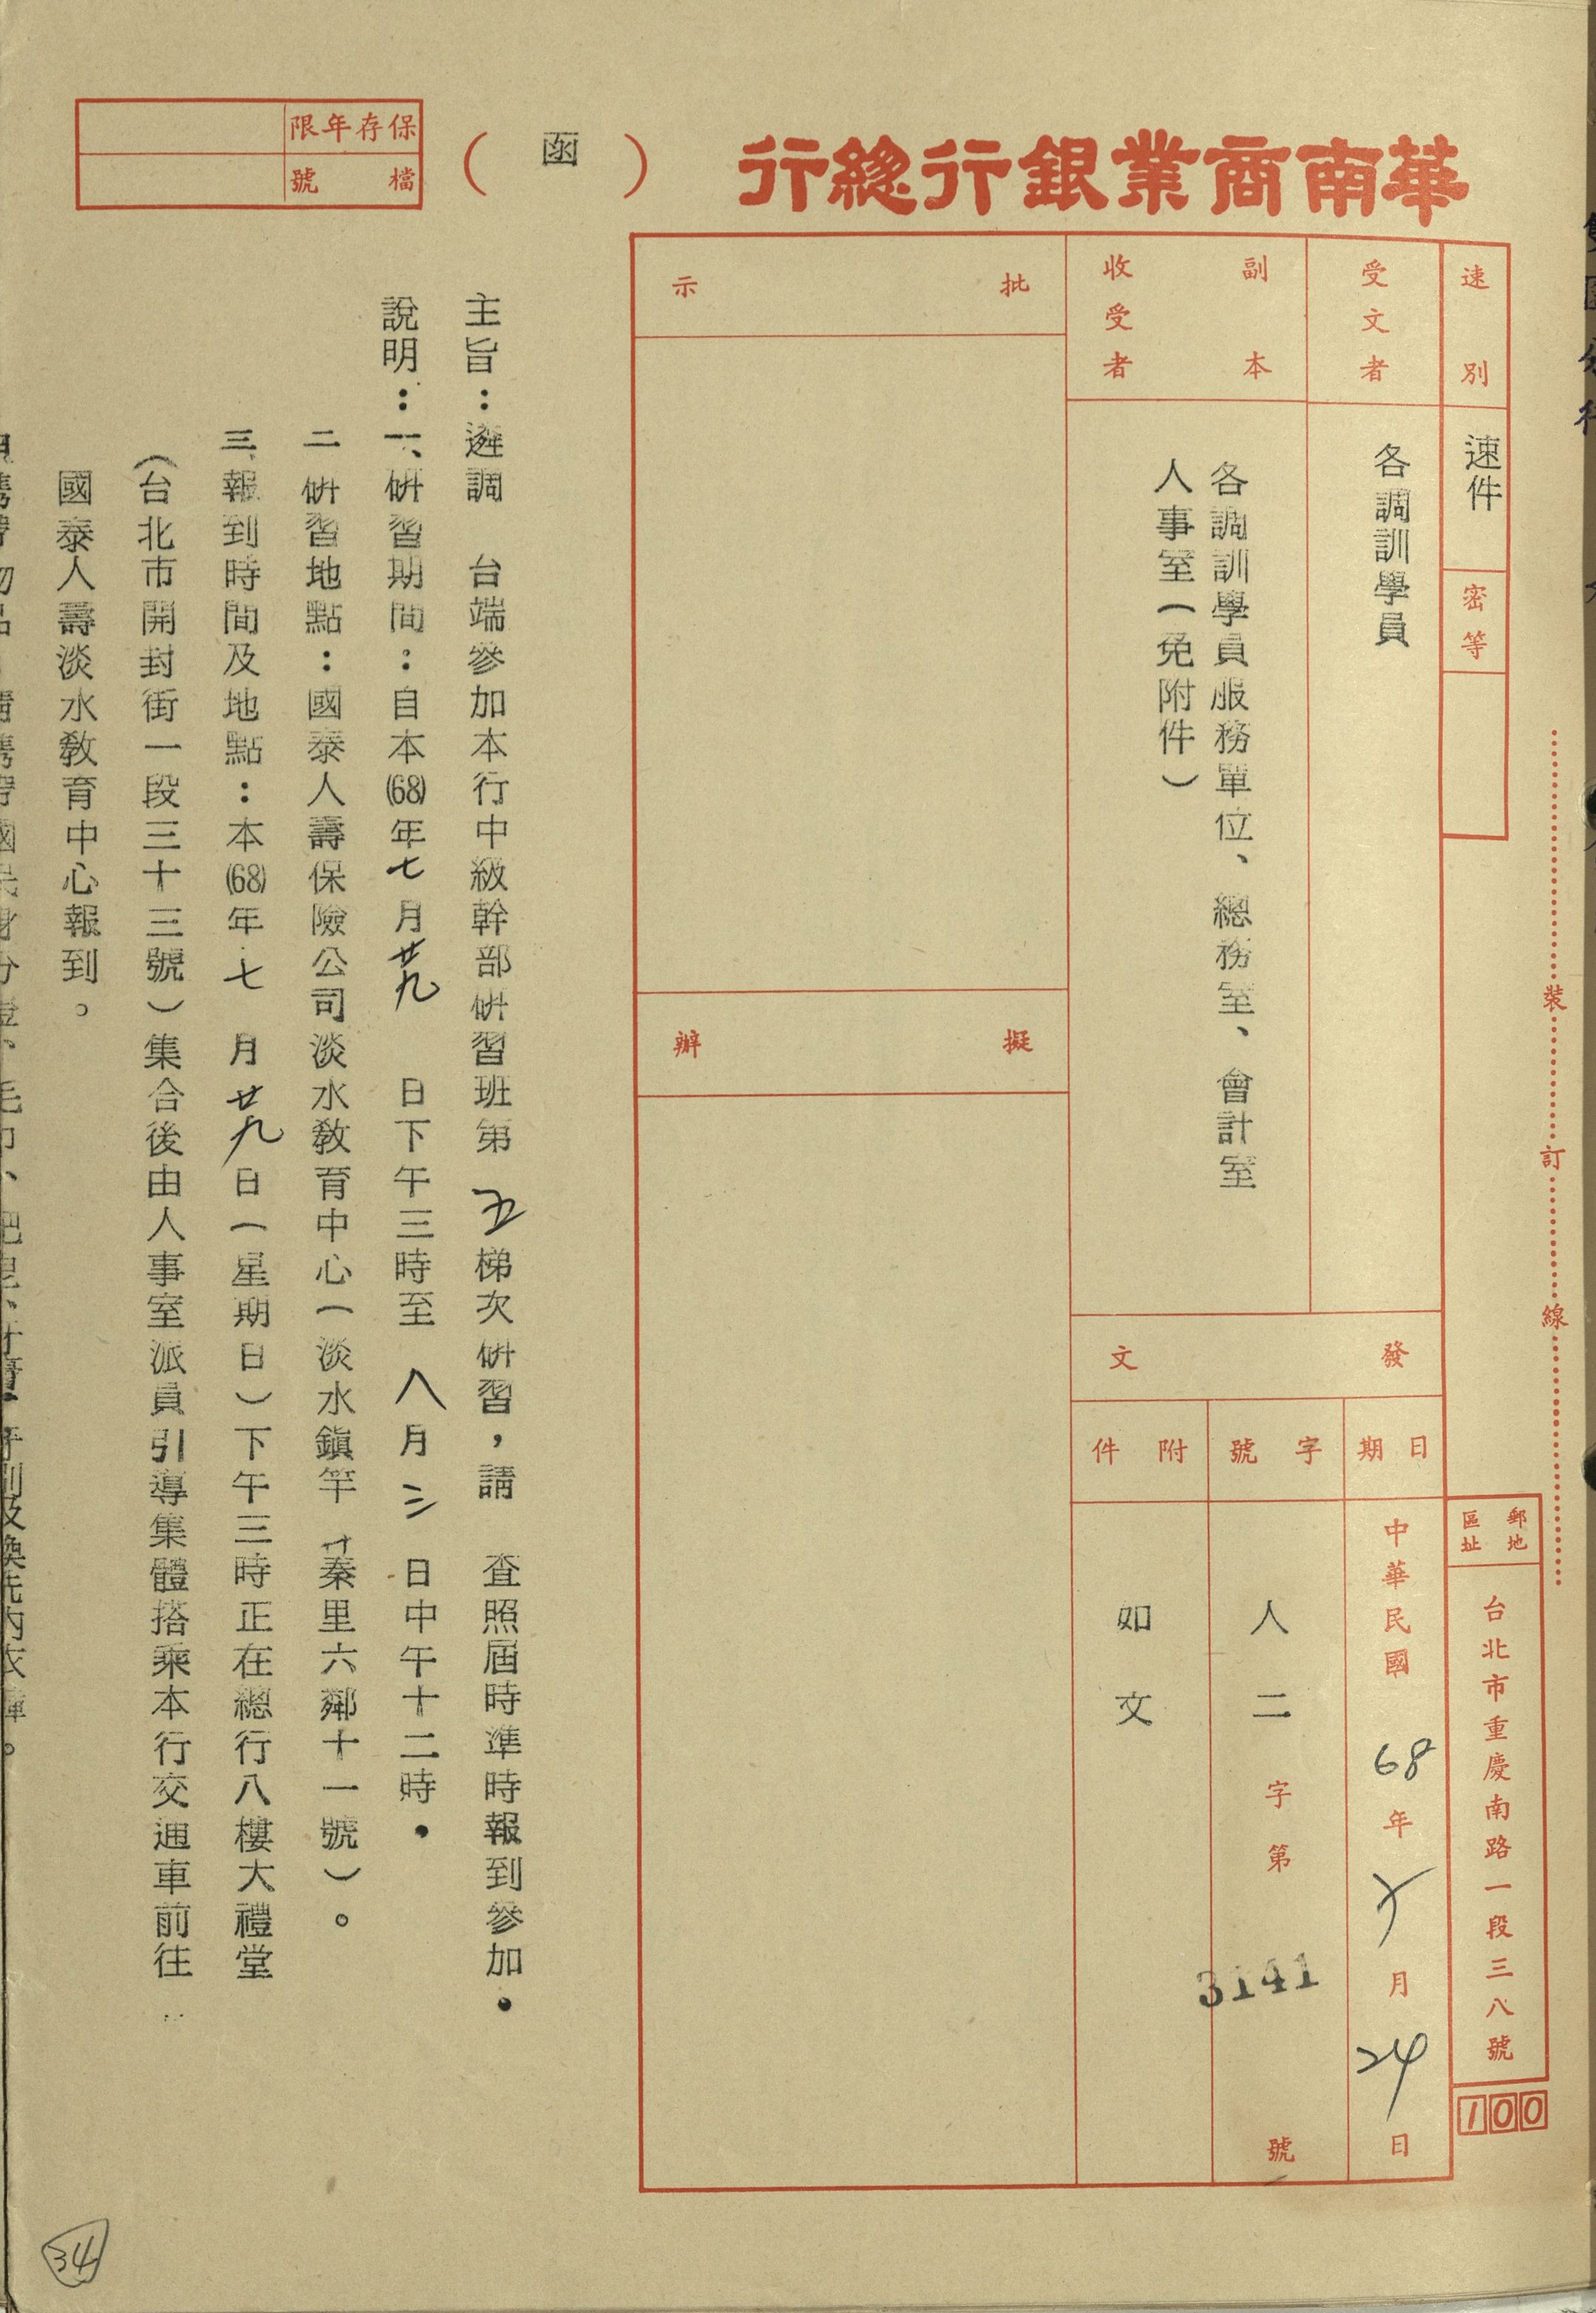 華南商業銀行總行
（函）
保存年限
檔號
速別
速件
密等
受文者
各調訓學員
副本
收受者
各調訓學員服務單位、總務室、會計室
人事室（免附件）
批示
擬辦
發文
日期
中華民國68年 月24日
字號
人二字第3141號
附件
如文
郵區
地址
台北市重慶南路一段三八號
100
裝訂線
主旨：遴調　台端參加本行中級幹部研習班第五梯次研習，請　查照屆時準時報到參加。
說明：一、研習期間：自本(68)年七月廿九日下午三時至八月三日中午十二時。
二 研習地點：國泰人壽保險公司淡水教育中心（淡水鎮竿 秦里六鄰十一號）。
三 報到時間及地點：本(68)年七月廿九日（星期日）下午三時正在總行八樓大禮堂
（台北市開封街一段三十三號）集合後由人事室派員引導集體搭乘本行交通車前往
國泰人壽淡水教育中心報到。
34